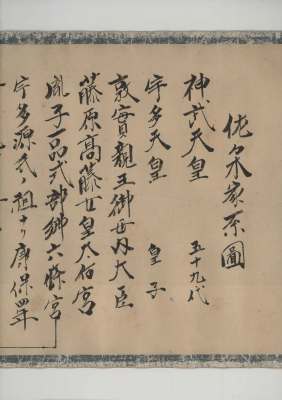 佐々木家系圖
神武天皇 五十九代
宇多天皇 皇子
敦實親王御母内大臣
藤原高藤女皇太伯宮
胤子一品式部卿六條宮
宇多源氏祖ナリ康保四年